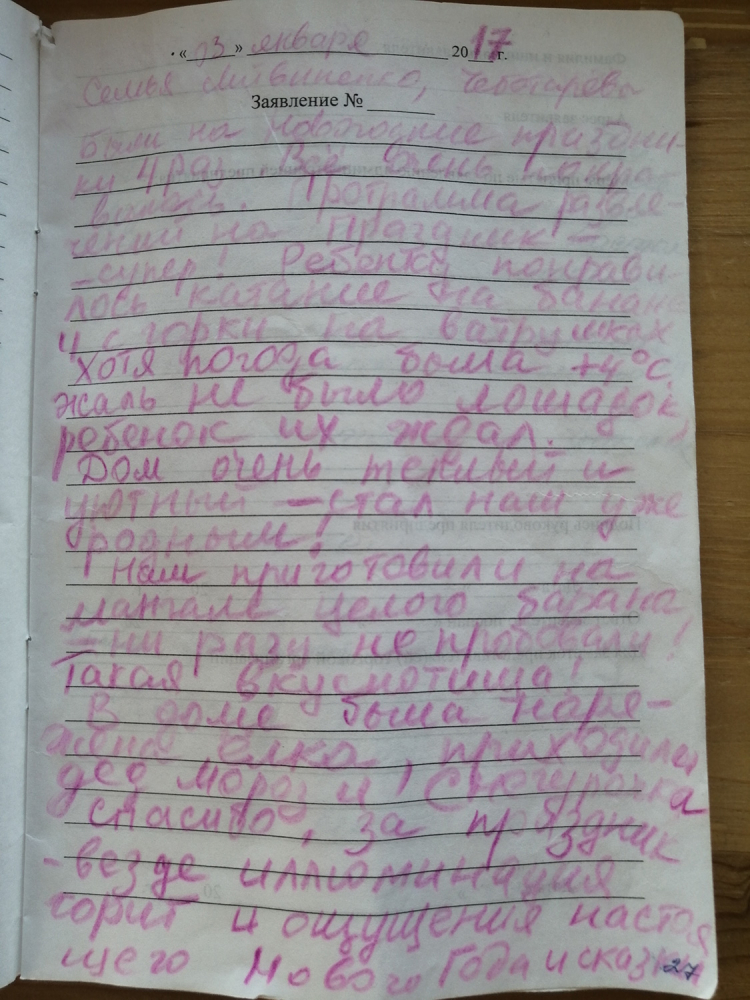 «03» января 2017 г.
Семья Литвиненко, Чеботаревы
Заявление №
были на новогодние праздни-
ки 4 раз. Всё очень понра-
вилось. Программа развле-
чений на праздник –
– супер! Ребенку понрави-
лось катание на банане
и с горки на ватрушках
хотя погода была +4°С.
жаль не было лошадок,
ребенок их ждал.
Дом очень теплый и
уютный – стал нам уже
родным!
Нам приготовили на
мангале целого барана
– ни разу не пробовали!
Такая вкуснотища!
В доме была наря-
жена ёлка, приходили
дед мороз и Снегурочка
спасибо, за праздник
- везде иллюминация
горит и ощущения настоя
щего Нового Года и сказки
27